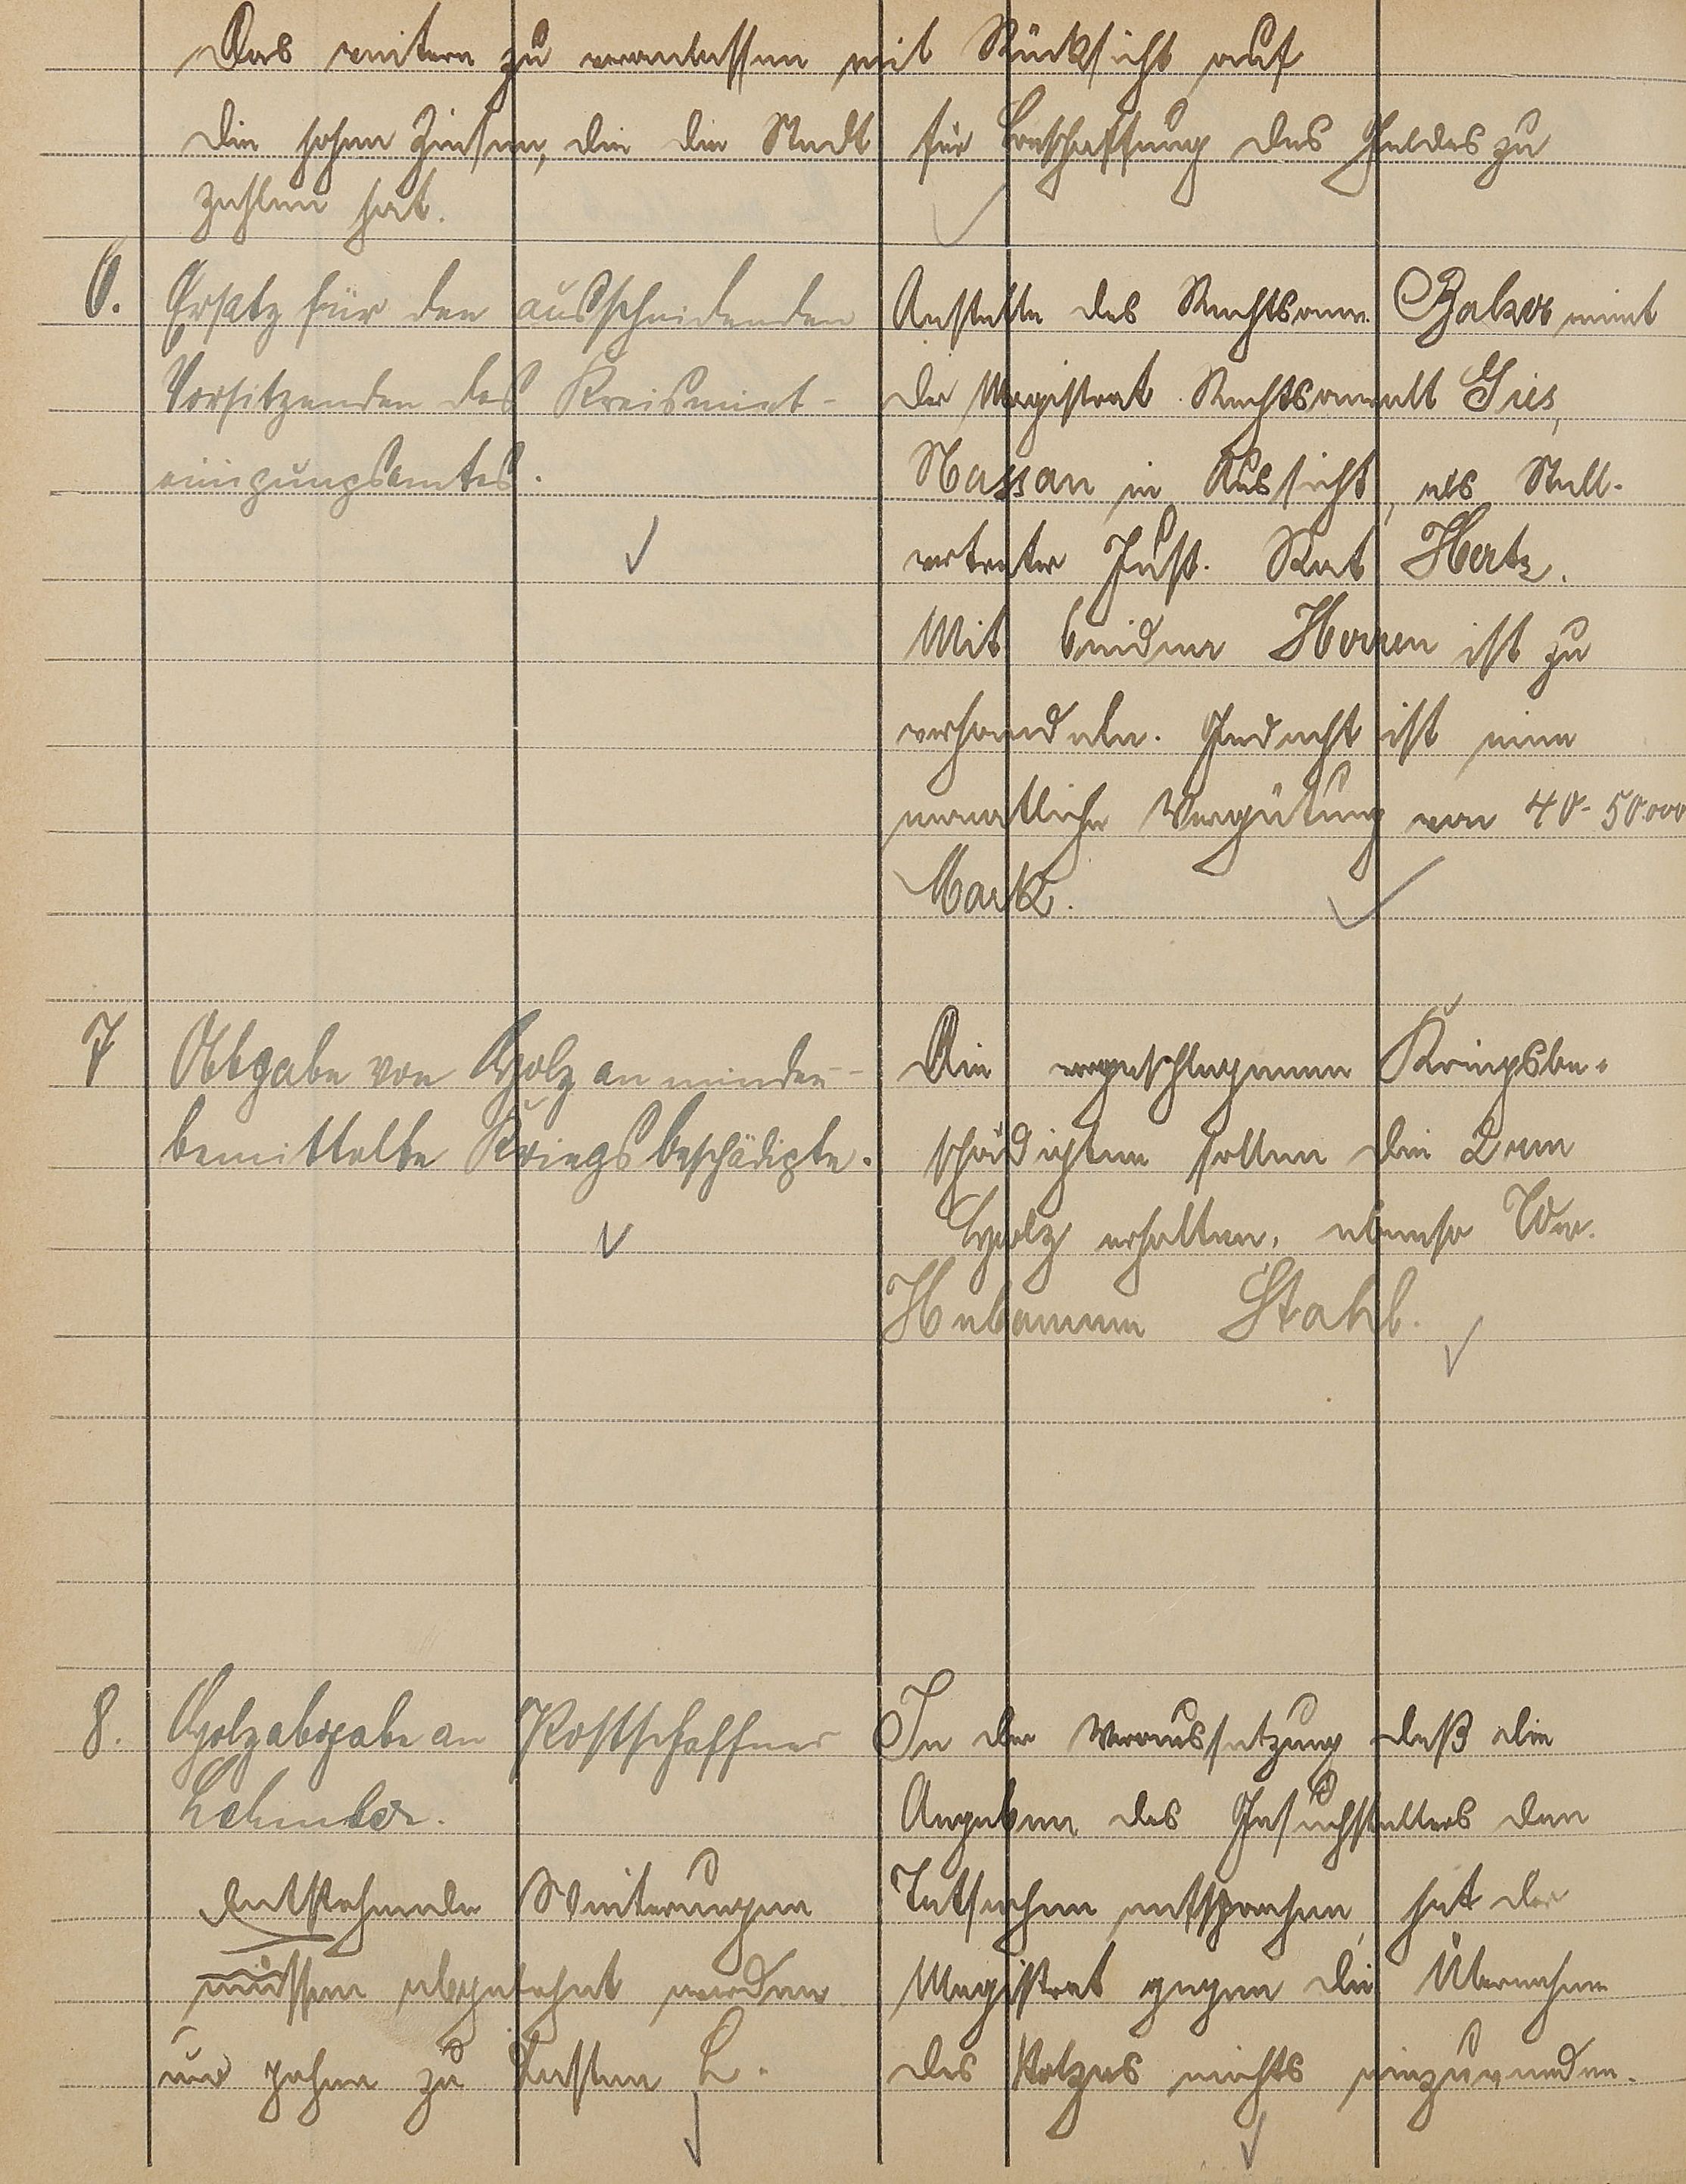 Das weitere zu veranlassen mit Rücksicht auf
die hohen Zinsen, die die Stadt für Beschaffung des Geldes zu
zahlen hat.
6. Ersatz für den ausscheidenden
Vorsitzenden des Kreismiet-
einigungsamtes.
Anstelle des Rechtsanw. Balzer nimt
der Magistrat Rechtsanwalt Gies,
Nassau in Aussicht, als Stell-
vertreter Just. Rat Hertz.
Mit beiden Herren ist zu
verhandeln. Gedacht ist eine
monatliche Vergütung von 40-50000
Mark.
7 Abgabe von Holz an minder-
bemittelte Kriegsbeschädigte.
Die vorgeschlagenen Kriegsbe-
schädigten sollen die 2 rm
Holz erhalten, ebenso Ww.
Hebamme Stahl.
8. Holzabgabe an Postschaffner
Lehmler.
Entstehende Weiterungen
müssen abgelehnt werden
und gehen zu Lasten L.
In der Voraussetzung daß die
Angaben des Gesuchstellers den
Tatsachen entsprechen, hat der
Magistrat gegen die Übernahme
des Holzes nichts einzuwenden.